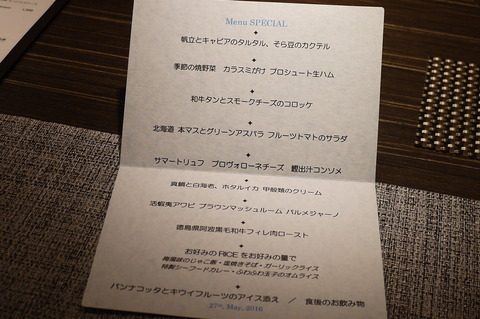 Menu SPECIAL
帆立とキャビアのタルタル、そら豆のカクテル
季節の焼野菜 カラスミがけ プロシュート生ハム
和牛タンとスモークチーズのコロッケ
北海道 本マスとグリーンアスパラ フルーツトマトのサラダ
サマートリュフ プロヴォローネチーズ 鰹出汁コンソメ
真鯛と白海老、ホタルイカ 甲殻類のクリーム
活蝦夷アワビ ブラウンマッシュルーム パルメジャーノ
徳島県阿波黒毛和牛フィレ肉ロースト
お好みの RICE をお好みの量で
梅風味のじゃこ飯・塩焼きそば・ガーリックライス
特製シーフードカレー・ふわふわ玉子のオムライス
パンナコッタとキウイフルーツのアイス添え / 食後のお飲み物
27th, May, 2016